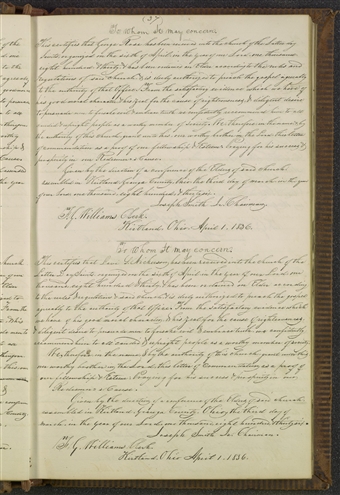 (37)
To Whom It may concern.
This certifies that George Rose has been received into the church of the Latter day
Saints organized on the sixth of April, in the year of our Lord one thousand
eight hundred & thirty & has been ordained an Elder according to the rules and
regulations of said church, & is duly authorized to preach the gospel agreeably
to the authority of that office. From the satisfactory evidence which we have of
his good moral character & his zeal for the cause of righteousness, & diligent desire
to persuade men to forsake evil & embrace truth, we confidently recommend him to all
candid & upright people as a worthy member of society. We, therefore, in the name & by
the authority of this church, grant unto this our worthy brother in the Lord, this letter
of commendation as a proof of our fellowship & esteem: praying for his success &
prosperity in our Redeemer's cause.
Given by the direction of a conference of the Elders of said church
assembled in Kirtland, Geauga County, Ohio, the third day of March, in the year
of our Lord, one thousand, eight hundred & thirty six.
Joseph Smith Jr. Chairman
F. G. Williams Clerk.
Kirtland, Ohio April 1, 1836.
To Whom It may concern.
This certifies that
has been received into the church of the
Latter day Saints organized on the sixth of April in the year of our Lord, one
thousand, eight hundred, & thirty & has been ordained an Elder according
to the rules & regulations of said church & is duly authorized to preach the gospel
agreeably to the authority of that office. From the satisfactory evidence which
we have of his good moral character, & his zeal for the cause of righteousness,
& diligent desire to persuade men to forsake evil & embrace truth, we confidently
recommend him to all candid & upright people as a worthy member of society.
We, therefore, in the name & by the authority of this church, grant unto this
our worthy brother in the Lord, this letter of commendation as a proof of
our fellowship & esteem: praying for his success & prosperity in our
Redeemer's cause.
Given by the direction of a conference of the Elders of said church
assembled in Kirtland, Geauga County, Ohio, the third day of
March, in the year of our Lord, one thousand, eight hundred & thirty six.
Joseph Smith Jr. Chairman
F. G. Williams Clerk
Kirtland, Ohio April 1, 1836.